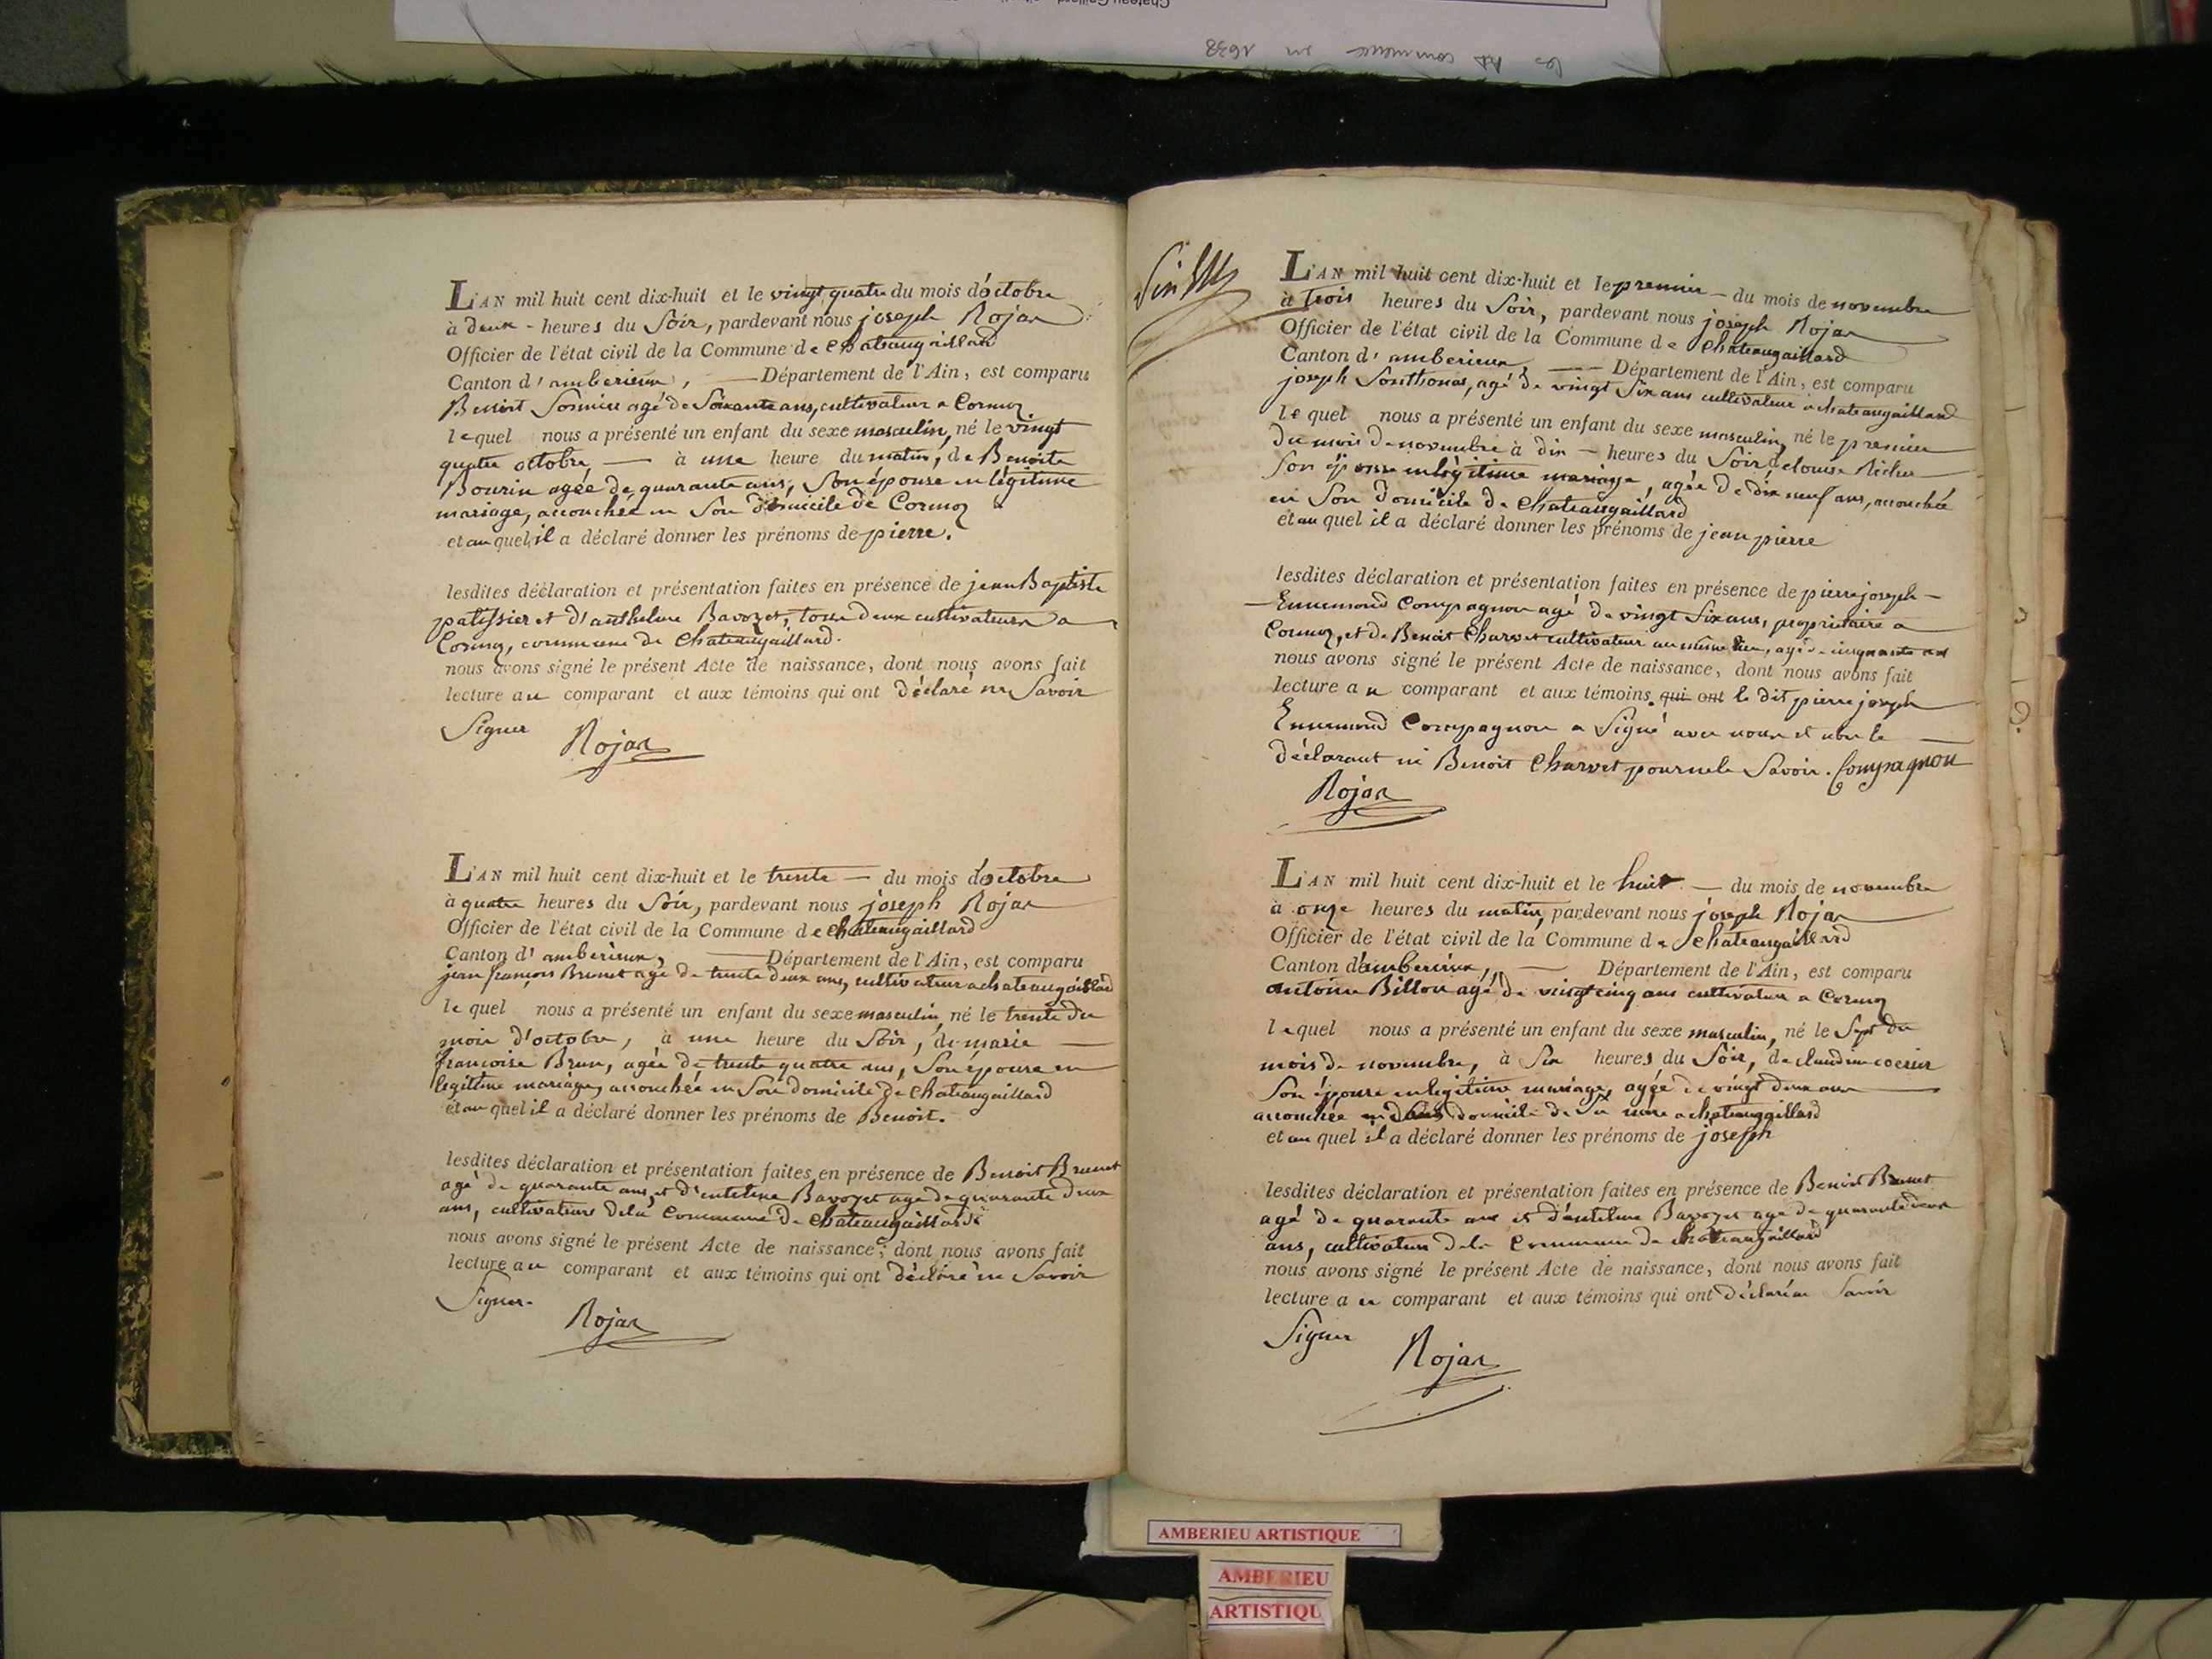 Chateau Gaillard
les commence en 1638
L'AN mil huit cent dix-huit et le vingt quatre du mois d'octobre
à deux - heures du Soir, pardevant nous joseph Rojar
Officier de l'état civil de la Commune de chateaugaillard
Canton d'amberieux, — Département de l'Ain, est comparu
Benoit agé de Soixante ans, cultivateur a Cormoz
lequel nous a présenté un enfant du sexe masculin, né le vingt
quatre octobre, — à une heure du matin, de Benoite
Bourin agée de quarante ans, Son épouse en légitime
mariage, accouchée en Son domicile de Cormoz
et au quel il a déclaré donner les prénoms de pierre.
lesdites déclaration et présentation faites en présence de jean Baptiste
patissier et d'anthelme Bavozet, tous deux cultivateurs a
Cormoz, commune de Chateaugaillard.
nous avons signé le présent Acte de naissance, dont nous avons fait
lecture au comparant et aux témoins qui ont déclaré ne Savoir
Signer
Rojar
L'AN mil huit cent dix-huit et le trente — du mois d'octobre
à quatre heures du Soir, pardevant nous joseph Rojar
Officier de l'état civil de la Commune de chateaugaillard
Canton d'amberieux, — Département de l'Ain, est comparu
jean françois Brunet agé de trente deux ans, cultivateur a chateaugaillard
le quel nous a présenté un enfant du sexe masculin, né le trente du
mois d'octobre, à une heure du Soir, de marie —
françoise Brun, agée de trente quatre ans, Son épouse en
legitime mariage, accouchée en Son domicile de chateaugaillard
et au quel il a déclaré donner les prénoms de Benoit.
lesdites déclaration et présentation faites en présence de Benoit Brunet
agé de quarante ans, et d'entelme Bavozet agé de quarante deux
ans, cultivateurs dela Commune de chateaugaillard
nous avons signé le présent Acte de naissance, dont nous avons fait
lecture au comparant et aux témoins qui ont déclaré ne Savoir
Signer.
Rojar
L'AN mil huit cent dix-huit et le premier — du mois de novembre
à trois heures du Soir, pardevant nous joseph Rojar
Officier de l'état civil de la Commune de chateaugaillard
Canton d'amberieux, — Département de l'Ain, est comparu
joseph Sonthonas, agé de vingt Six ans cultivateur a chateaugaillard
le quel nous a présenté un enfant du sexe masculin, né le premier
du mois de novembre à dix — heures du Soir de louise
Son épouse en légitime mariage, agée de dix neuf ans, accouchée
en Son domicile de Chateaugaillard
et au quel il a déclaré donner les prénoms de jean pierre
lesdites déclaration et présentation faites en présence de pierre joseph —
Ennemond Compagnon agé de vingt Six ans, propriétaire a
Cormoz, et de Benoit Charvet cultivateur au même lieu, agé de cinquante ans
nous avons signé le présent Acte de naissance, dont nous avons fait
lecture au comparant et aux témoins qui ont le dit pierre joseph
Ennemond Compagnon a Signé avec nous et non le —
déclarant ni Benoit Charvet pour ne le Savoir. Compagnon
Rojar
L'AN mil huit cent dix-huit et le huit — du mois de novembre
à onze heures du matin, pardevant nous joseph Rojar
Officier de l'état civil de la Commune de chateaugaillard
Canton d'amberieux, — Département de l'Ain, est comparu
antoine Billon agé de vingt cinq ans cultivateur a Cormoz
lequel nous a présenté un enfant du sexe masculin, né le Sept du
mois de novembre, à Six heures du Soir, de claudine
Son épouse en legitime mariage, agée de vingt deux ans
accouchée domicile de Sa mere a chateaugaillard
et au quel il a déclaré donner les prénoms de joseph
lesdites déclaration et présentation faites en présence de Benoit Brunet
agé de quarante ans et d'entelme Bavozet agé de quarante deux
ans, cultivateurs dela Commune de chateaugaillard
nous avons signé le présent Acte de naissance, dont nous avons fait
lecture au comparant et aux témoins qui ont déclaré ne Savoir
Signer
Rojar
AMBERIEU ARTISTIQUE
AMBERIEU
ARTISTIQU